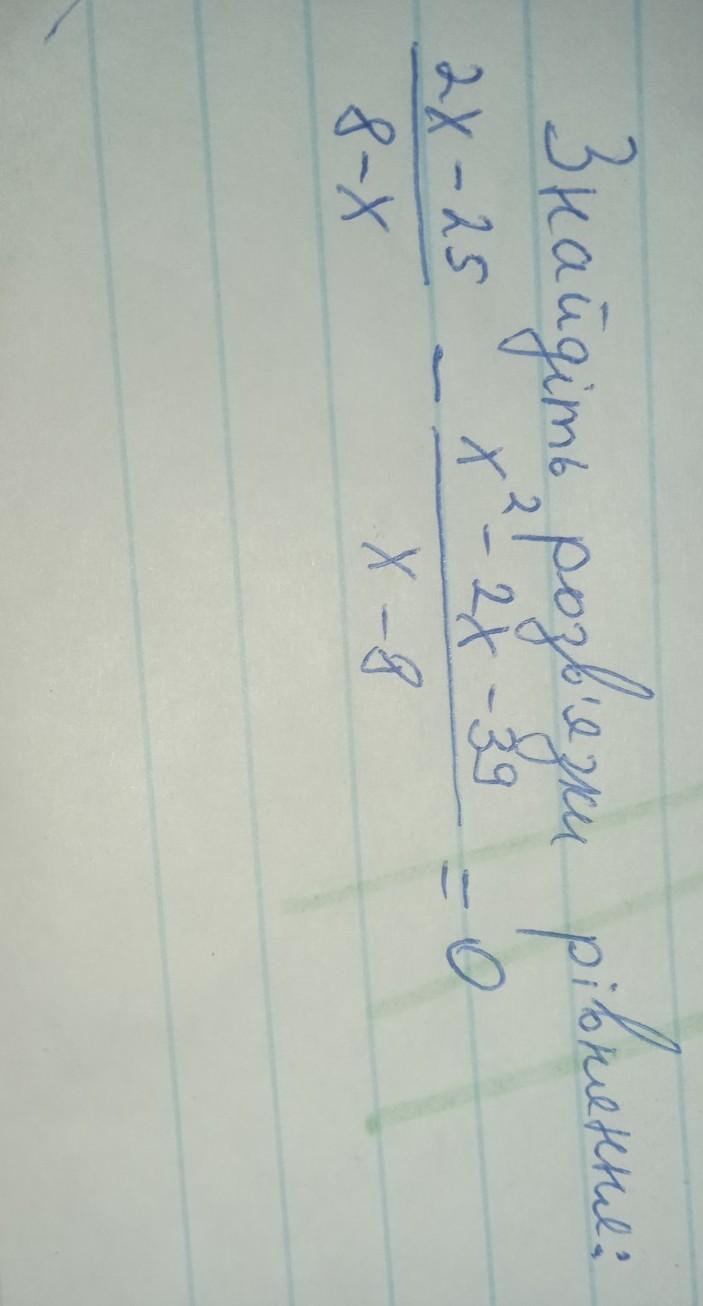 Знайдіть розв'язки рівняння:
2x - 25 / 8 - x - x² - 2x - 39 / x - 8 = 0